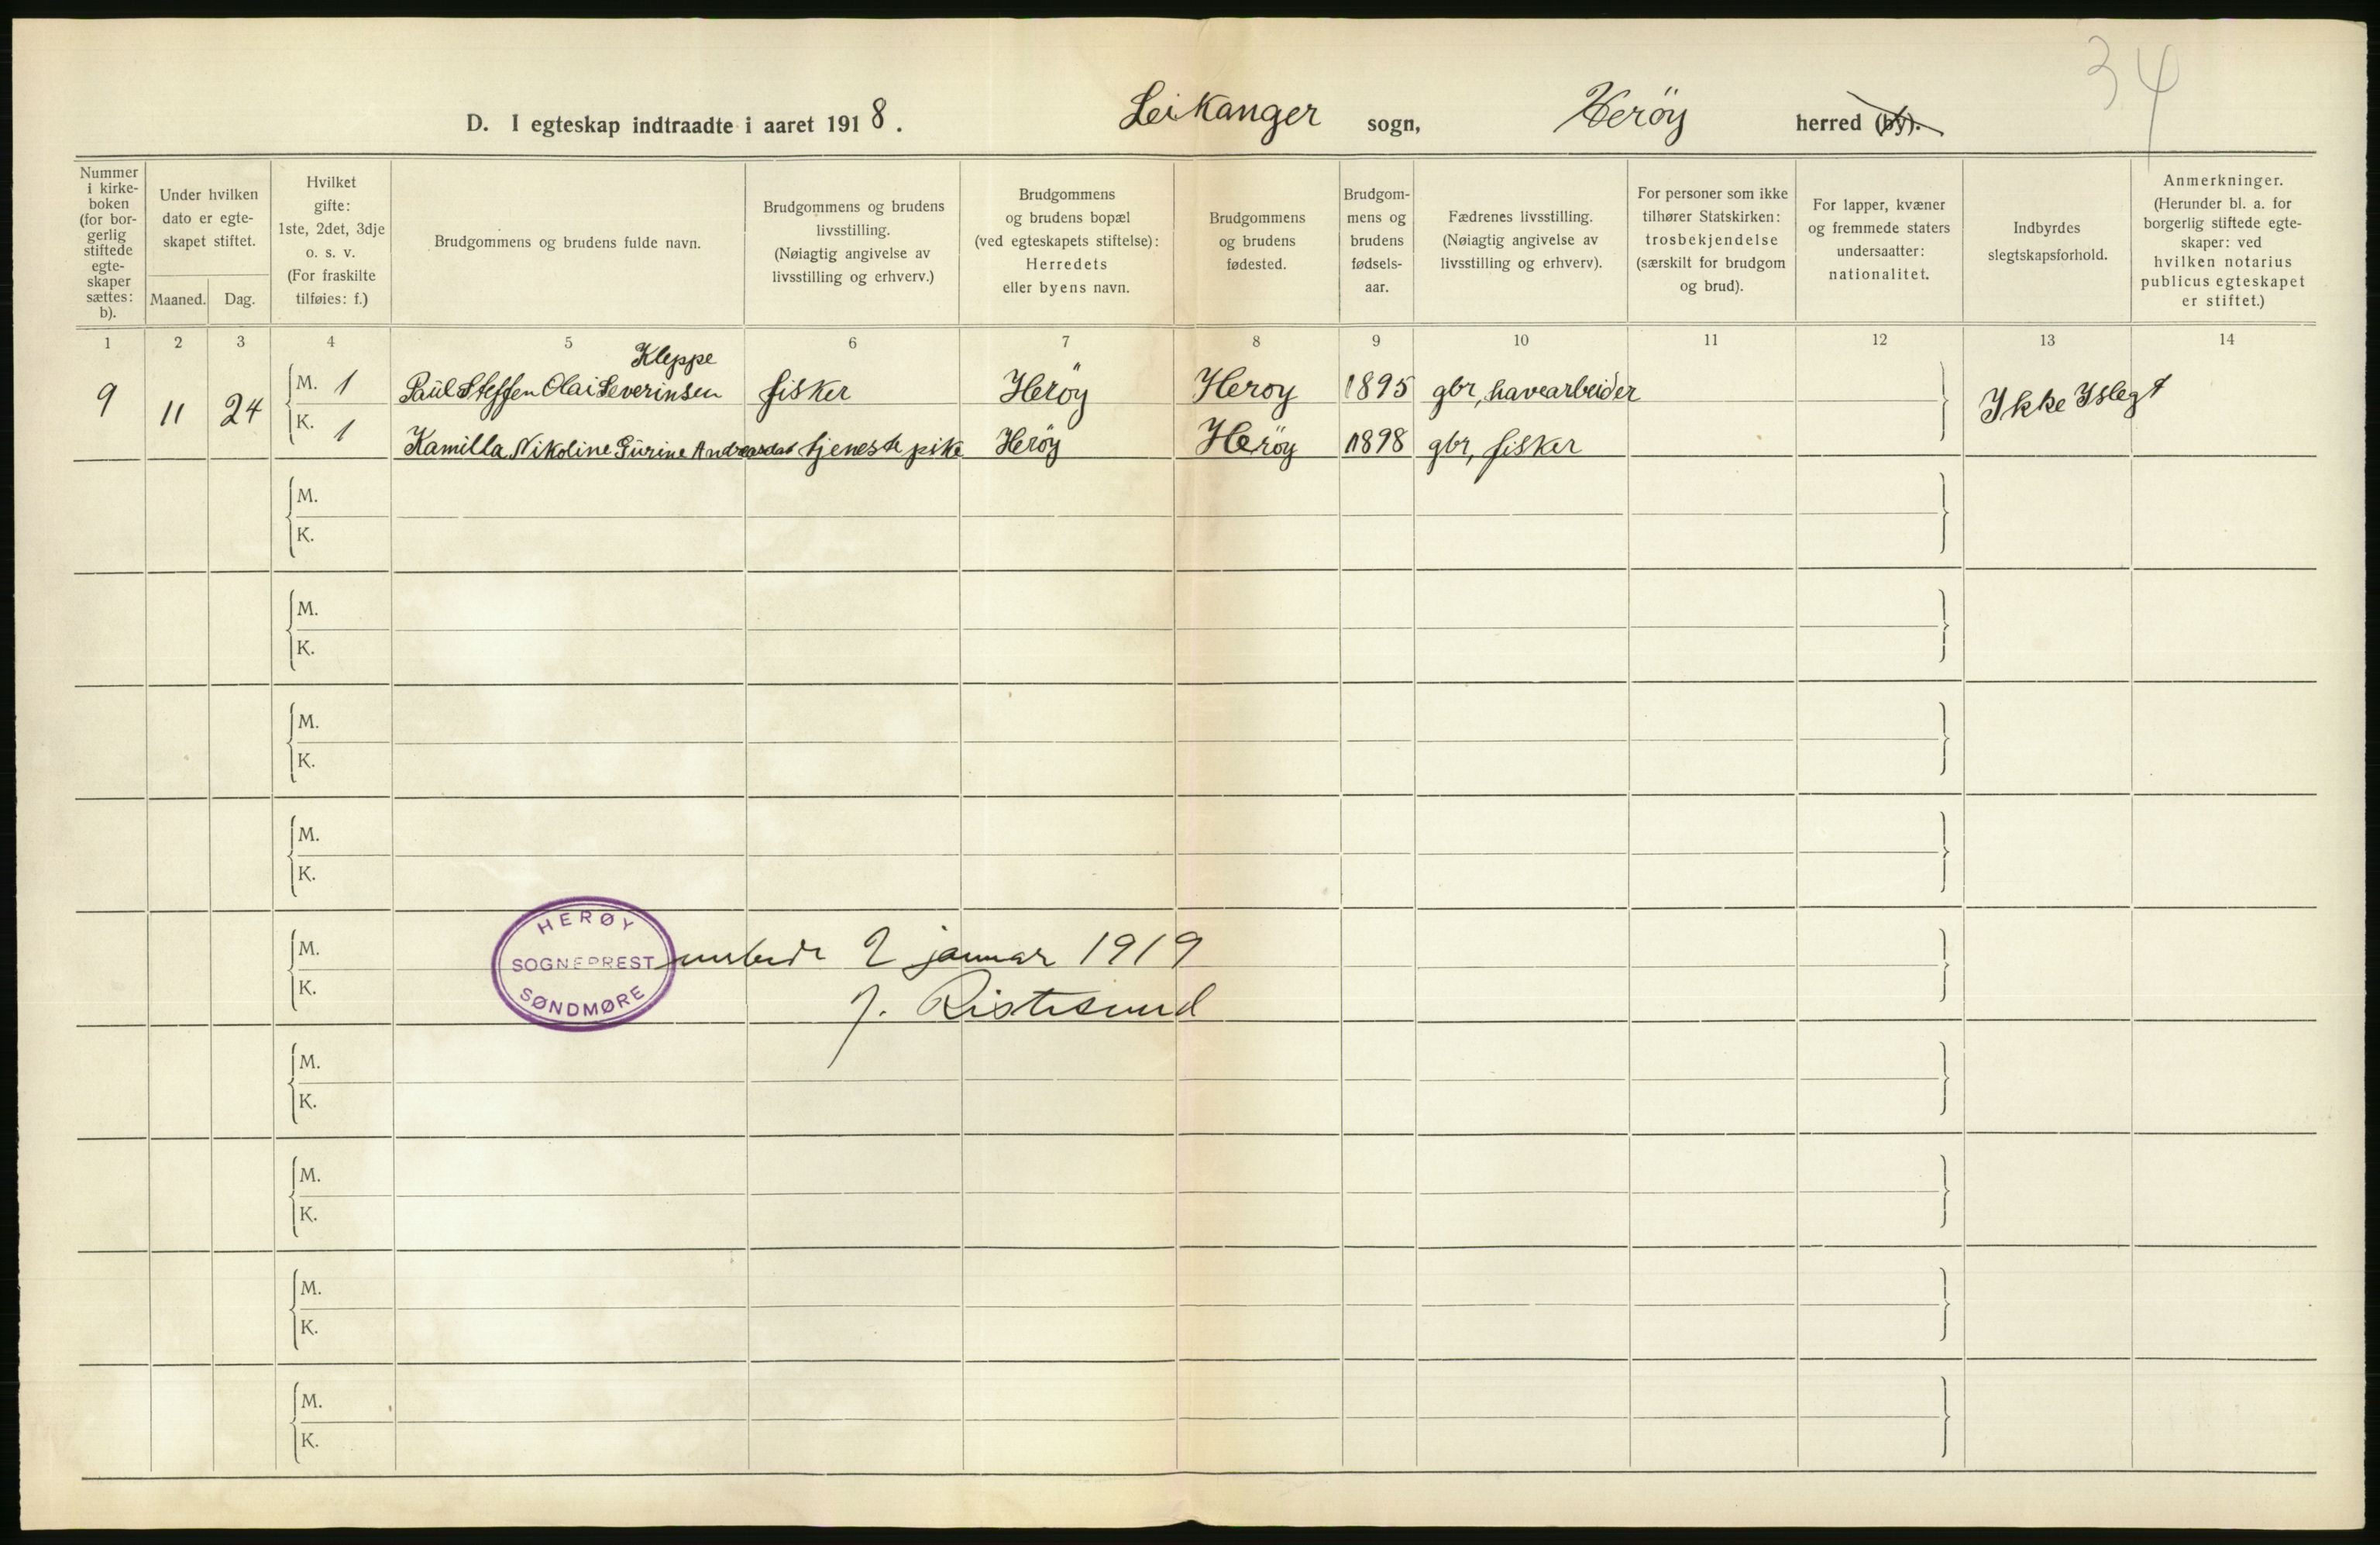 34
D. I egteskap indtraadte i aaret 1918. Leikanger sogn, Heröy herred (by).
Nummer i kirkeboken (for borgerlig stiftede egteskaper sættes: b).
Under hvilken dato er egteskapet stiftet.
Maaned. Dag.
Hvilket gifte: 1ste, 2det, 3dje o. s. v. (For fraskilte tilføies: f.)
Brudgommens og brudens fulde navn.
Brudgommens og brudens livsstilling. (Nøiagtig angivelse av livsstilling og erhverv.)
Brudgommens og brudens bopæl (ved egteskapets stiftelse): Herredets eller byens navn.
Brudgommens og brudens fødested.
Brudgommens og brudens fødselsaar.
Fædrenes livsstilling. (Nøiagtig angivelse av livsstilling og erhverv).
For personer som ikke tilhører Statskirken: trosbekjendelse (særskilt for brudgom og brud).
For lapper, kvæner og fremmede staters undersaatter: nationalitet.
Indbyrdes slegtskapsforhold.
Anmerkninger. (Herunder bl. a. for borgerlig stiftede egteskaper: ved hvilken notarius publicus egteskapet er stiftet.)
1 2 3 4 5 6 7 8 9 10 11 12 13 14
Kleppe
9 11 24 M. 1 Paül Steffen Olai Severinsen fisker Heröy Heroy 1895 gbr, havearbeider Ikke Islegt
K. 1 Kamilla Nikoline Gürine tjeneste pike Heröy Heröy 1898 gbr, fisker
M.
K.
M.
K.
M.
K.
M.
K.
HERØY
M. SOGNEPREST 2 januar 1919
K. SØNDMØRE J.
M.
K.
M.
K.
M.
K.
M.
K.